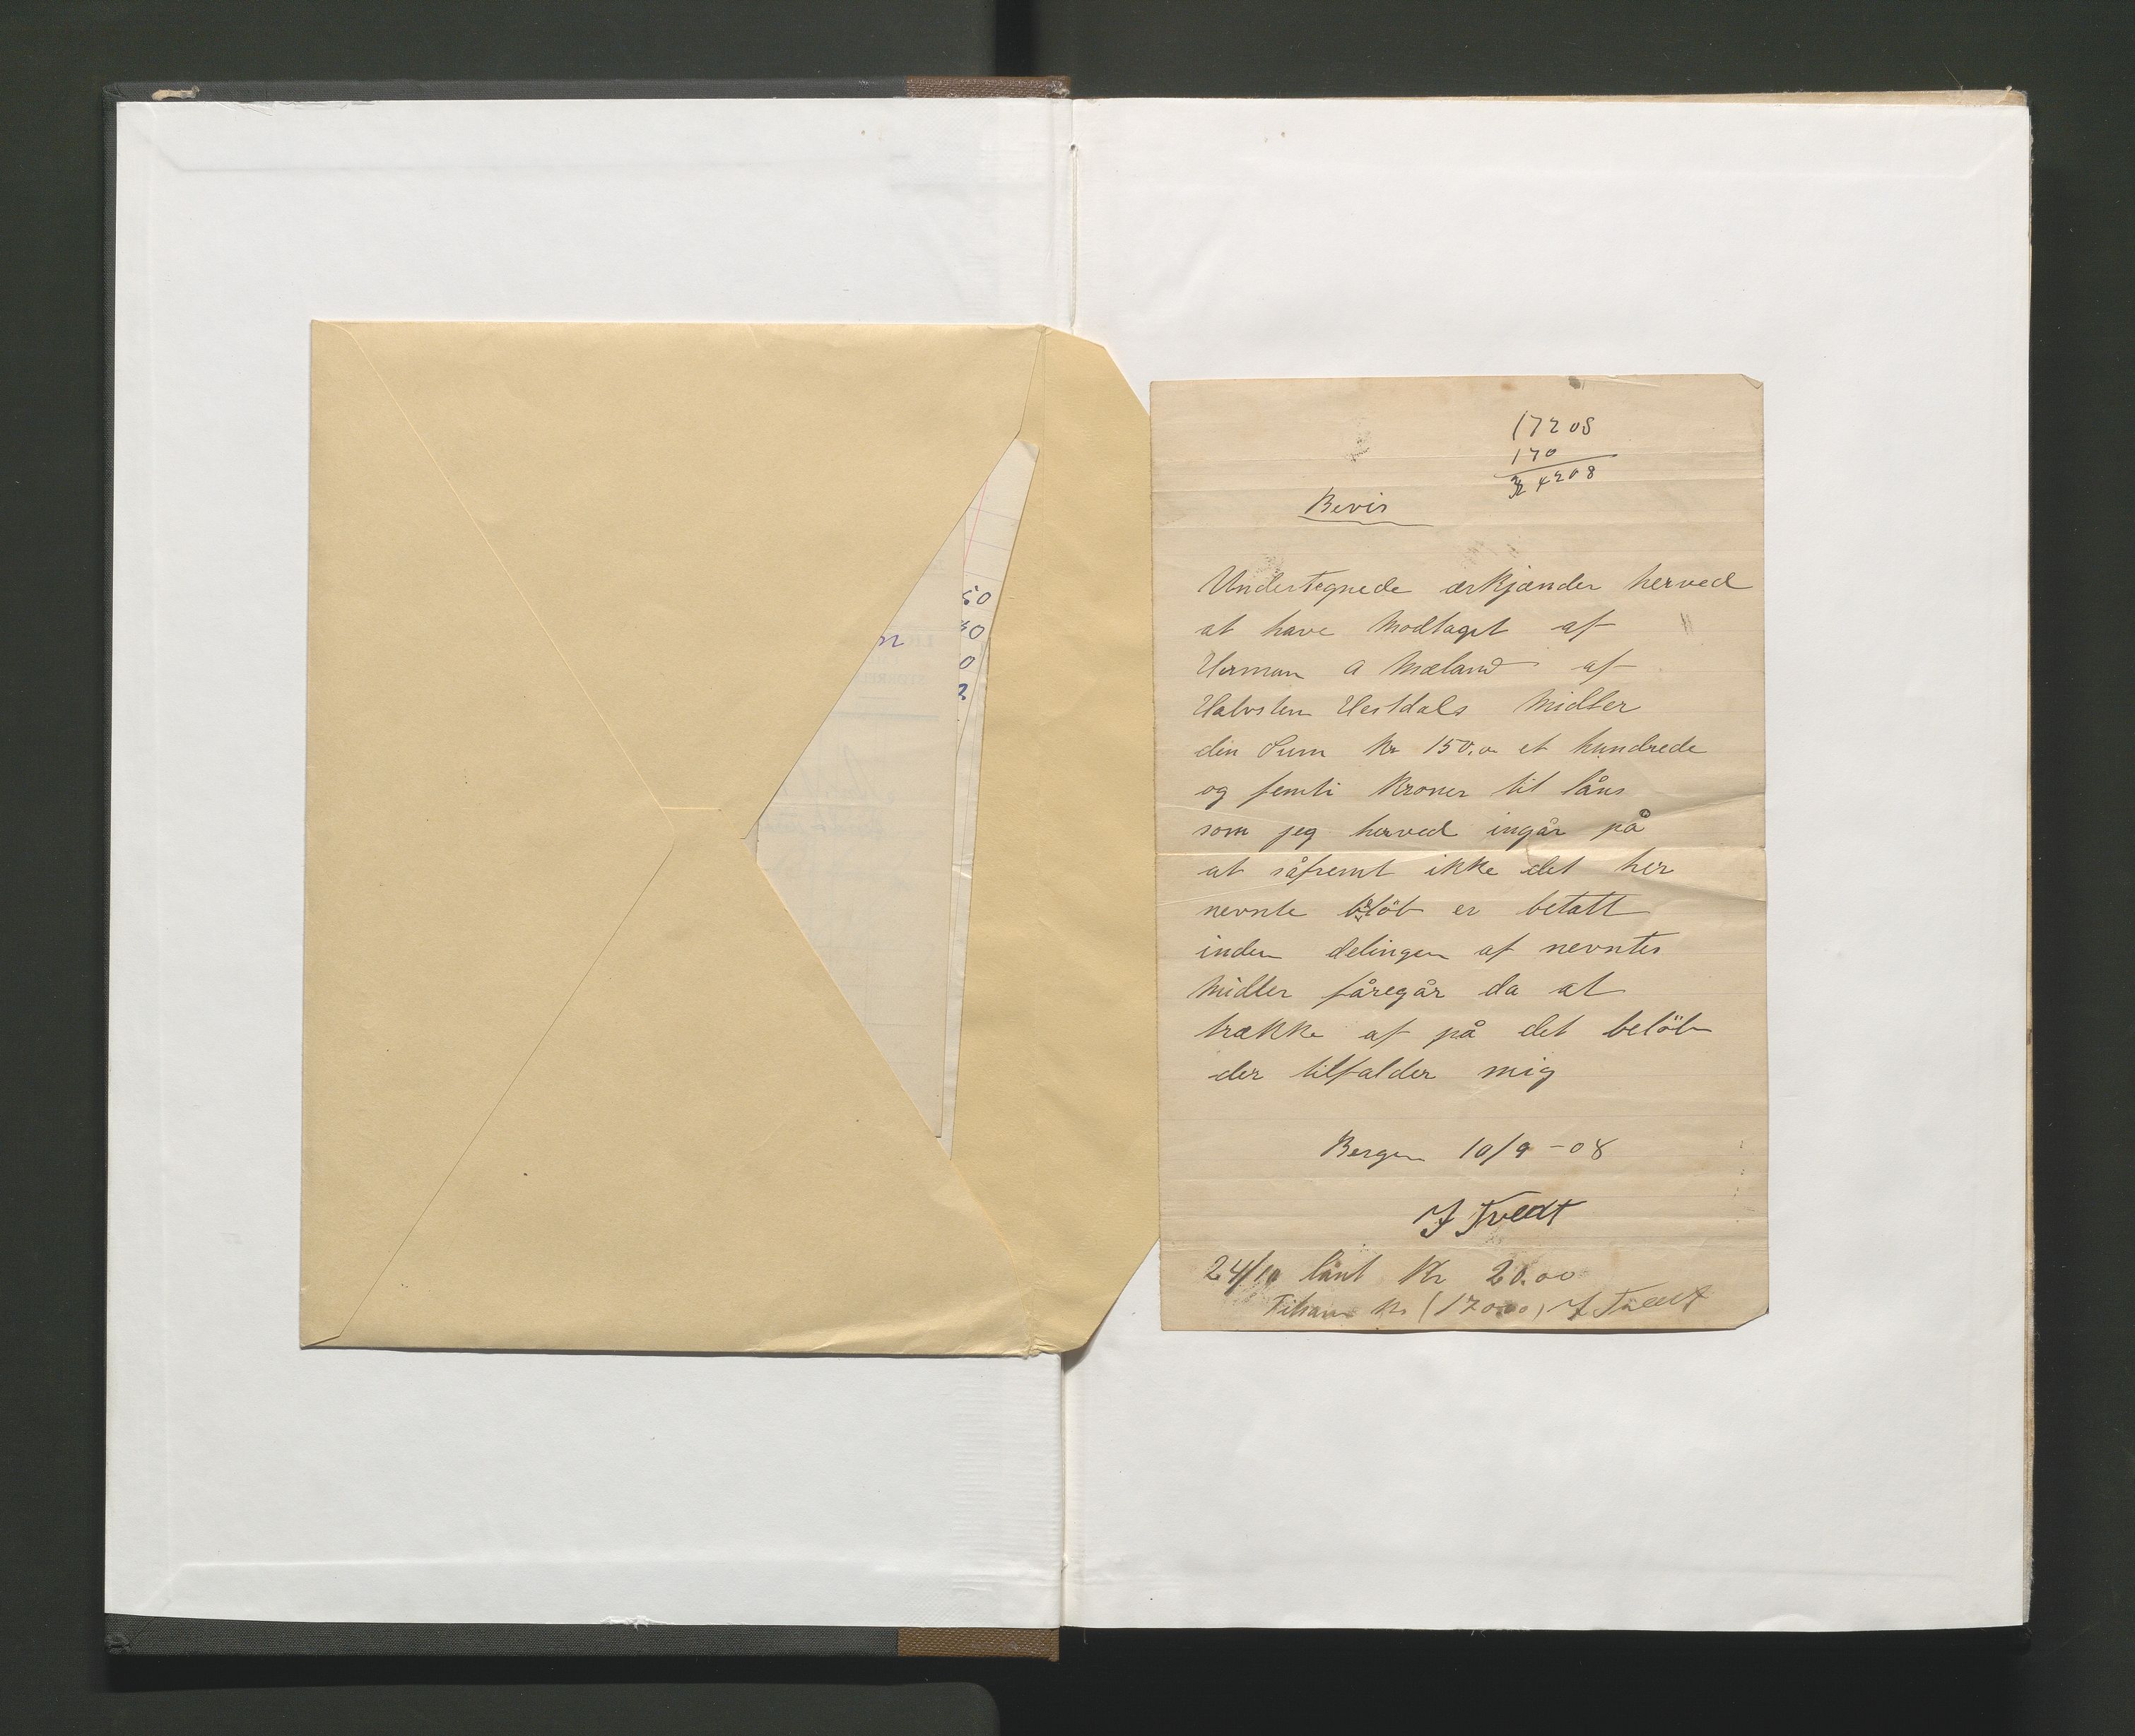 50
0
17208
170
34208
Bevis
Undertegnede ærkjænder herved
at have Modtaget af
Herman A Mæland af
Halvsten Hestdals Midler
den Sum Kr 150.00 et hundrede
og femti Kroner til låns
som jeg herved ingår på
at såfremt ikke det her
nevnte belöb er betalt
inden delingen af nevntes
Midler fåregår da at
trække af på det belöb
der tilfalder mig
Bergen 10/9 - 08
J Tvedt
24/10 lånt Kr 20.00
Tilsam Kr (170.00) J Tvedt